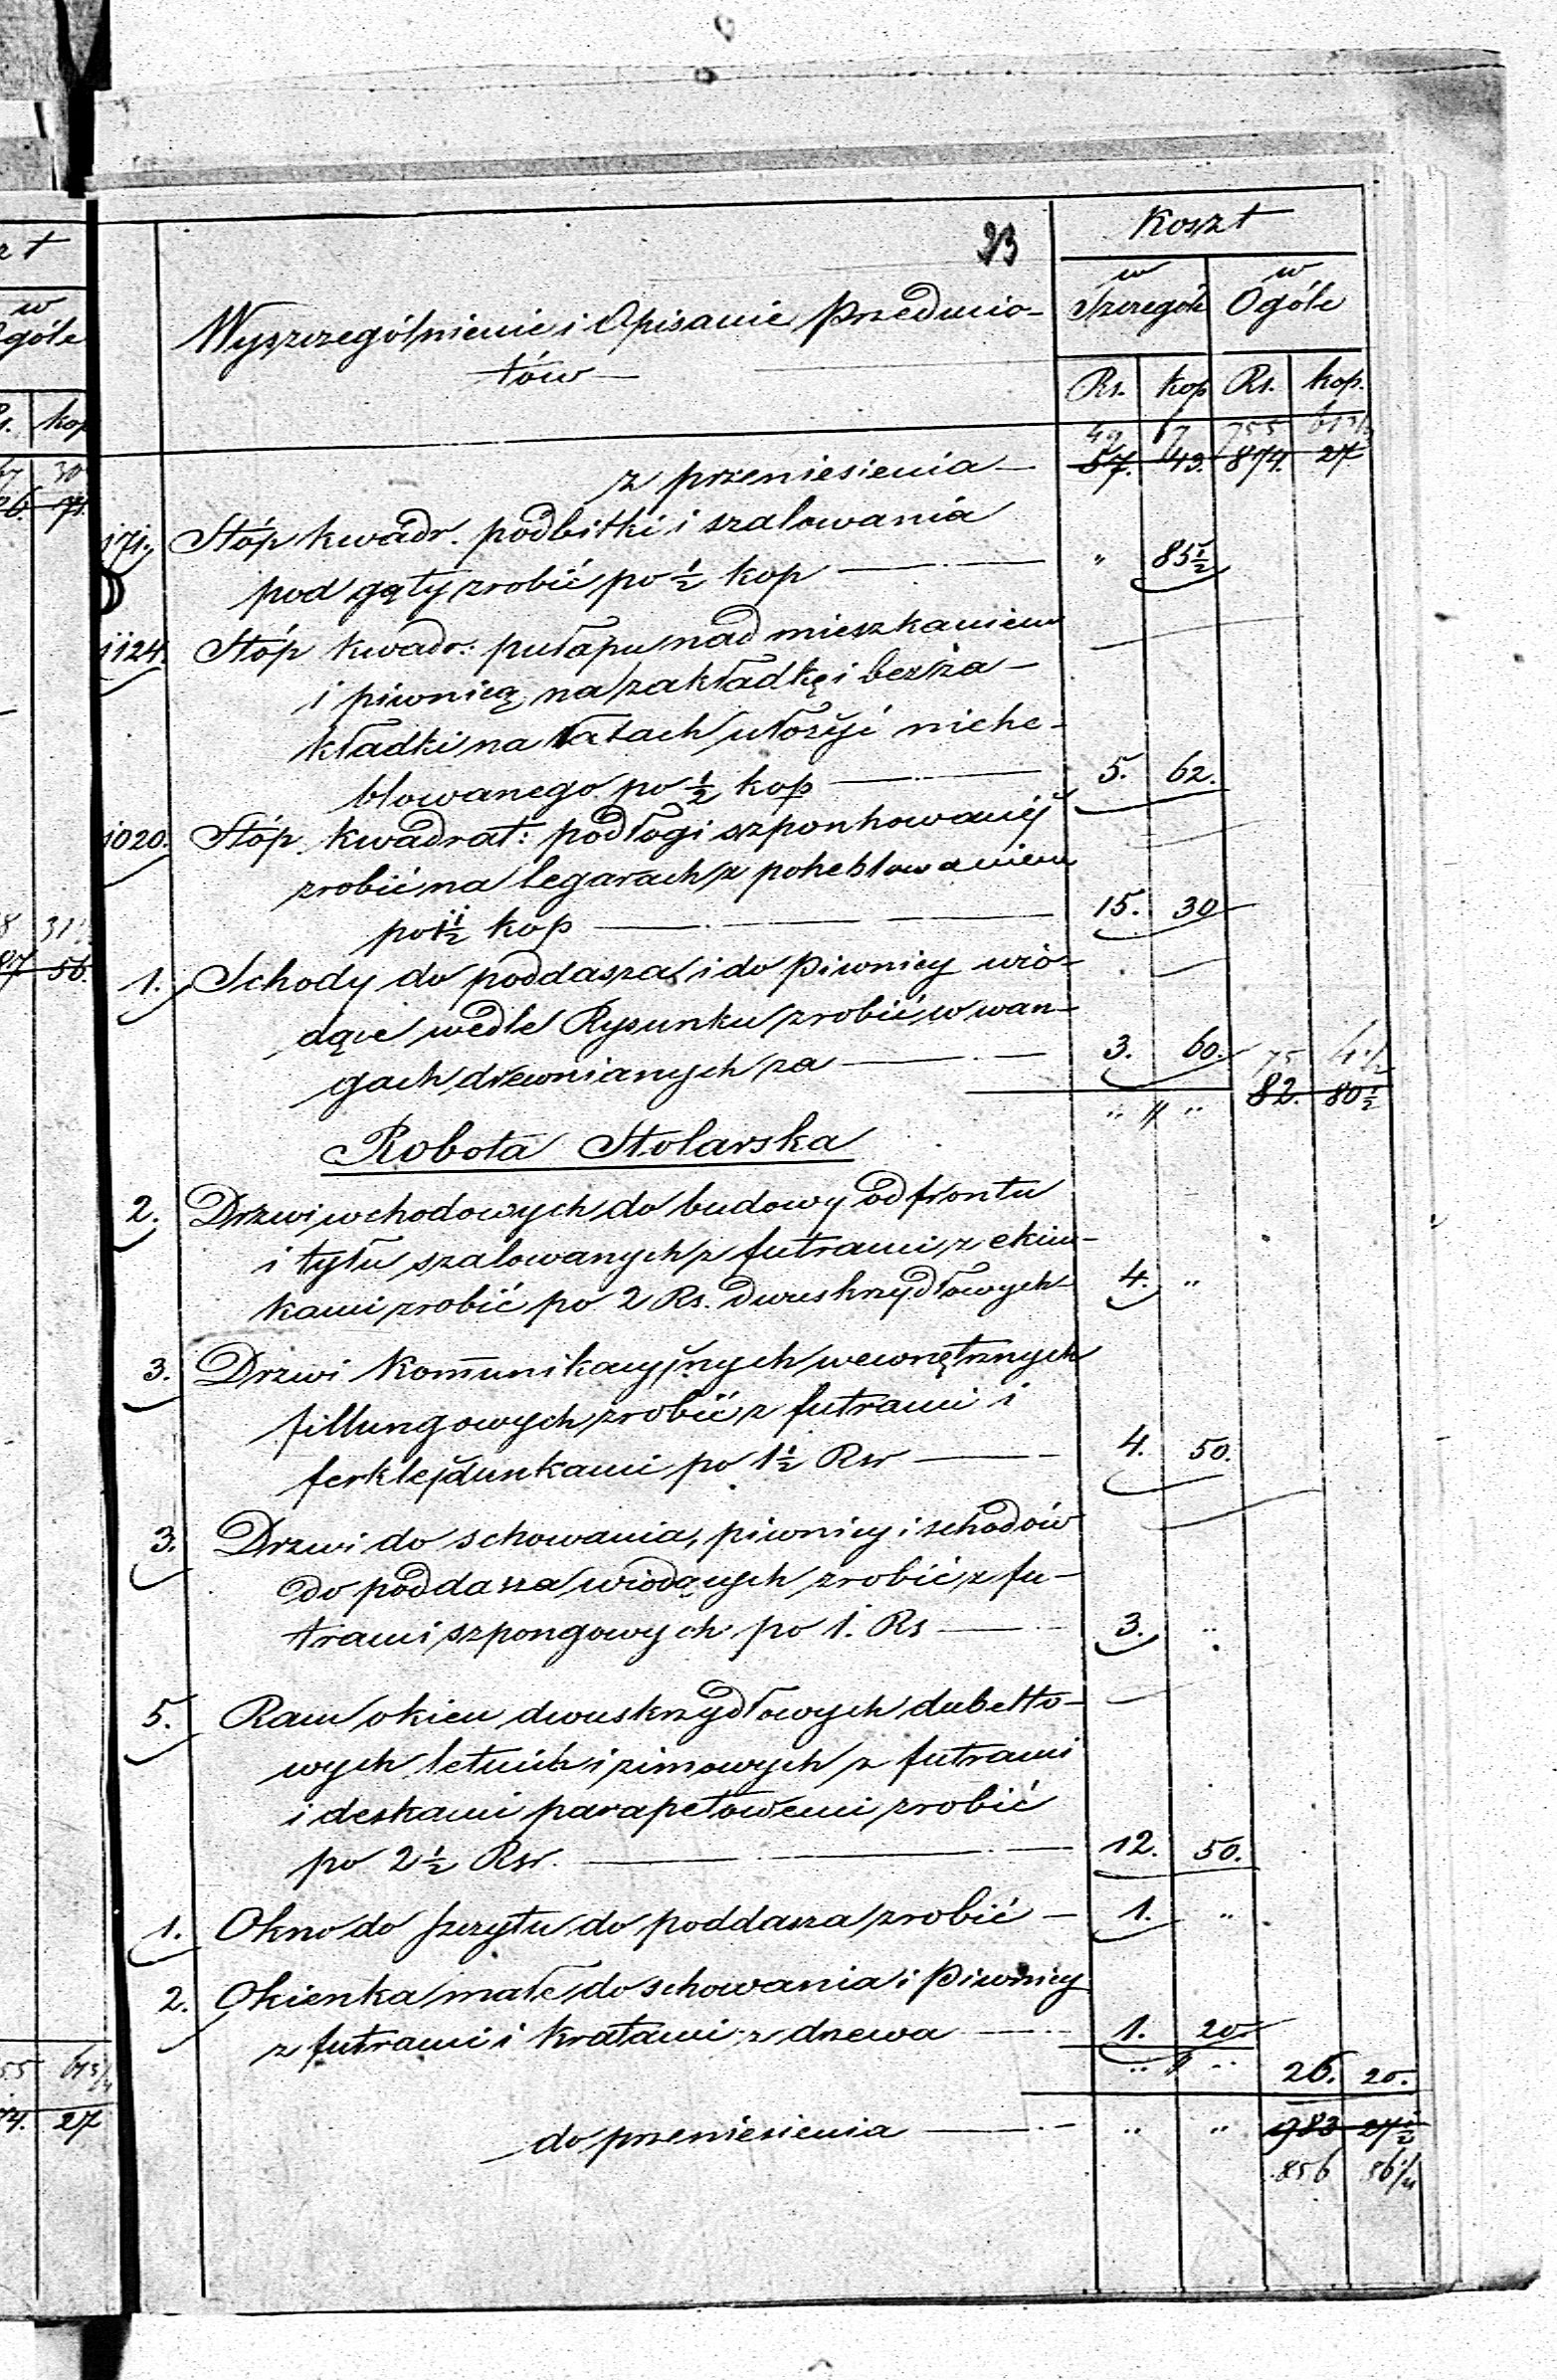 23
Koszt
w Szczególe | w Ogóle
Wyszczególnienie i Opisanie Przedmio-
tów
Rs. | kop | Rs. | kop.
49 | 7 | 755 | 61 3/4
z przeniesienia — 57. | 43. | 874. | 27
171. Stóp kwadr. podbitki i szalowania
pod gąty zrobić po ½ kop — " | 85½
1124. Stóp kwadr: pułapu nad mieszkaniem
i piwnicą na zakładkę i bez za-
kładki na łatach ułożyć niehe-
blowanego po ½ kop — 5. | 62.
1020. Stóp kwadrat: podłogi szponhowanéj
zrobić na legarach z poheblowaniem
po 1½ kop — 15. | 30
1. Schody do poddasza i do Piwnicy wio-
dące wedle Rysunku zrobić w wan-
gach drewnianych za — 3. | 60.
75 | 4 1/2
82. | 80½
Robota Stolarska
2. Drzwi wchodowych do budowy od frontu
i tyłu szalowanych z futrami z ekiu-
kami zrobić po 2 Rs. dwuskrzydłowych — 4. | "
3. Drzwi komunikacyjnych wewnętrznych
fillungowych zrobić z futrami i
ferklejdunkami po 1½ Rsr — 4. | 50.
3. Drzwi do schowania, piwnicy i schodów
do poddasza wiodących zrobić z fu-
trami szpongowych po 1. Rs — 3. | "
5. Ram okien dwuskrzydłowych dubelto-
wych letnich i zimowych z futrami
i deskami parapetowemi zrobić
po 2½ Rsr. — 12. | 50.
1. Okno do szczytu do poddasza zrobić — 1. | "
2. Okienka małe do schowania i Piwnicy
z futrami i kratami z drzewa — 1. | 20.
26. | 20.
do przeniesienia — " | " | 983 | 27½
856 | 86 1/4